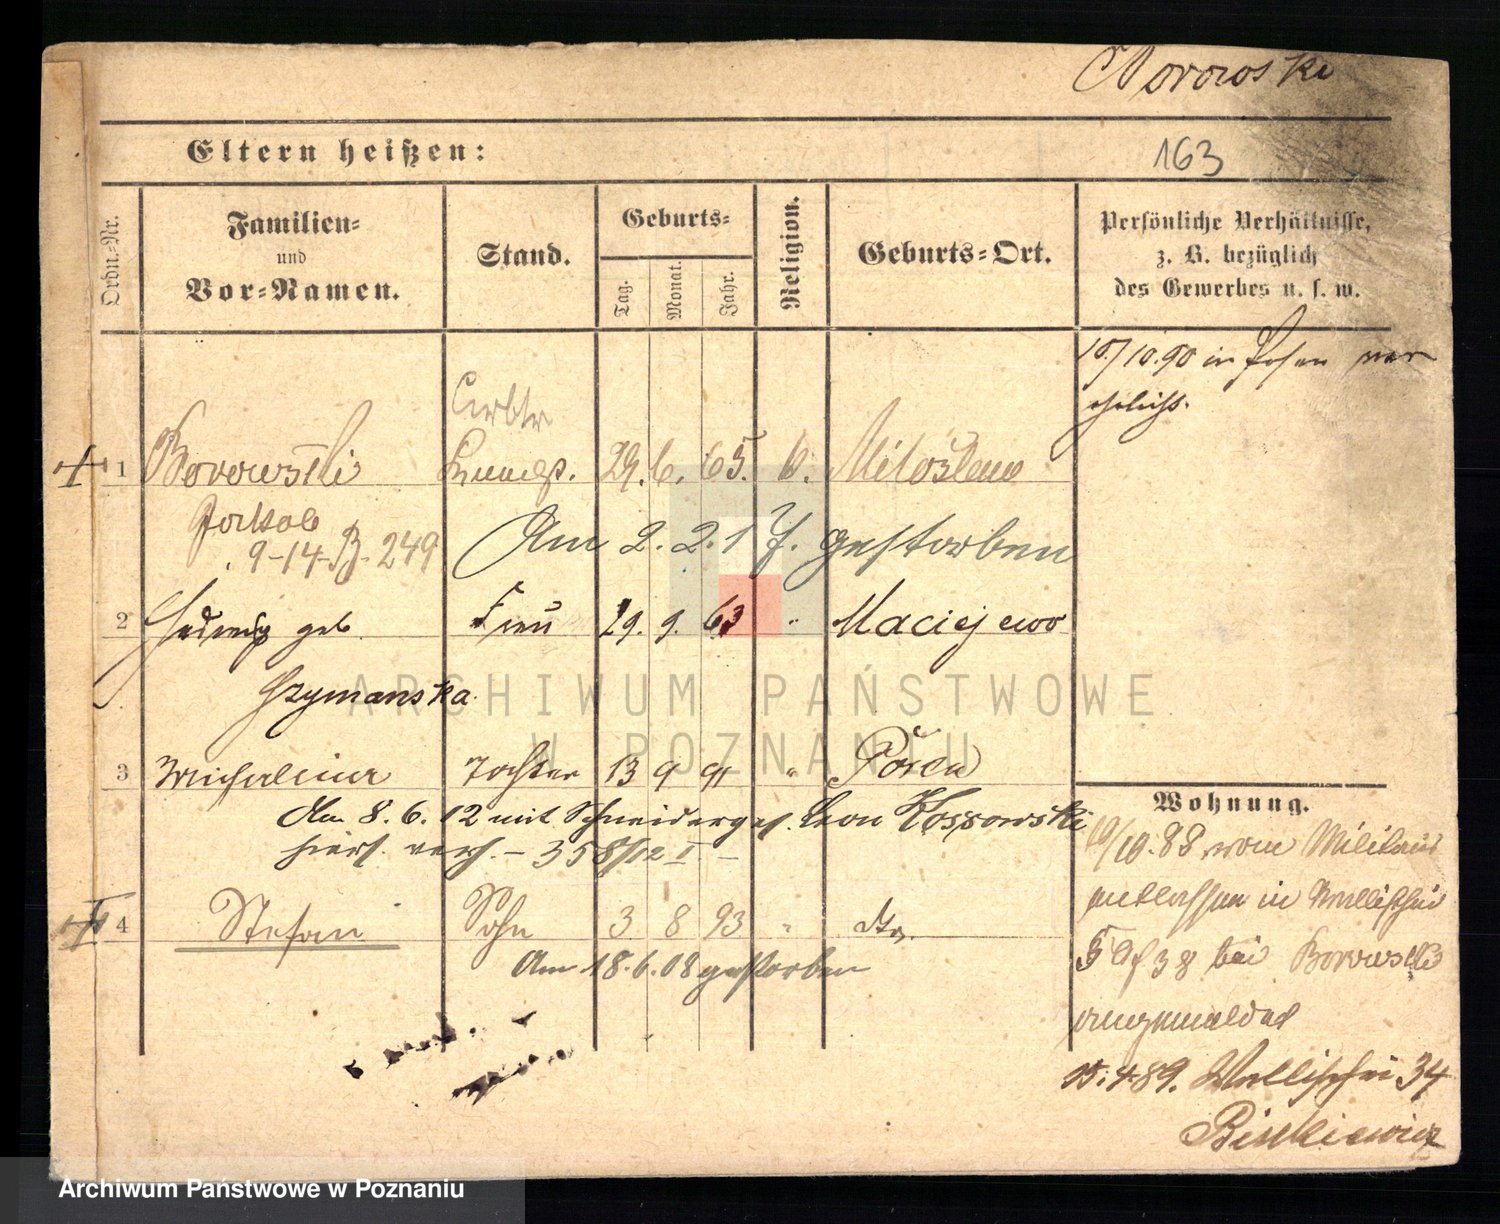 Borowski
Eltern heißen:
163
Ordn.-Nr.
Familien-
und
Vor-Namen.
Stand.
Geburts-
Tag.
Monat.
Jahr.
Religion.
Geburts-Ort.
Persönliche Verhältnisse,
z. B. bezüglich
des Gewerbes u. s. w.
10/10.90 in Posen ver
ehelicht.
1 Borowski 29. 6. 65. k. Miloslaw
Jakob
9-14-B. 249
Am 2. 2. 17. gestorben
2 Hedwig geb. Frau 29. 9. 63 " Maciejewo
Szymanska
3 Michalina Tochter 13 9 91 " Posen
Am 8. 6. 12 mit Schneiderges. Leon Kossowski
hiers. verh. - 358/12 I -
4 Stefan Sohn 3 8 93 " dto.
Am 18.6.08 gestorben
Wohnung.
10/10.88 vom Militair
entlassen in Wallischei
38 bei Borowski
angemeldet
15.4.89. Wallischei 34
ARCHIWUM PAŃSTWOWE
W POZNANIU
Archiwum Państwowe w Poznaniu